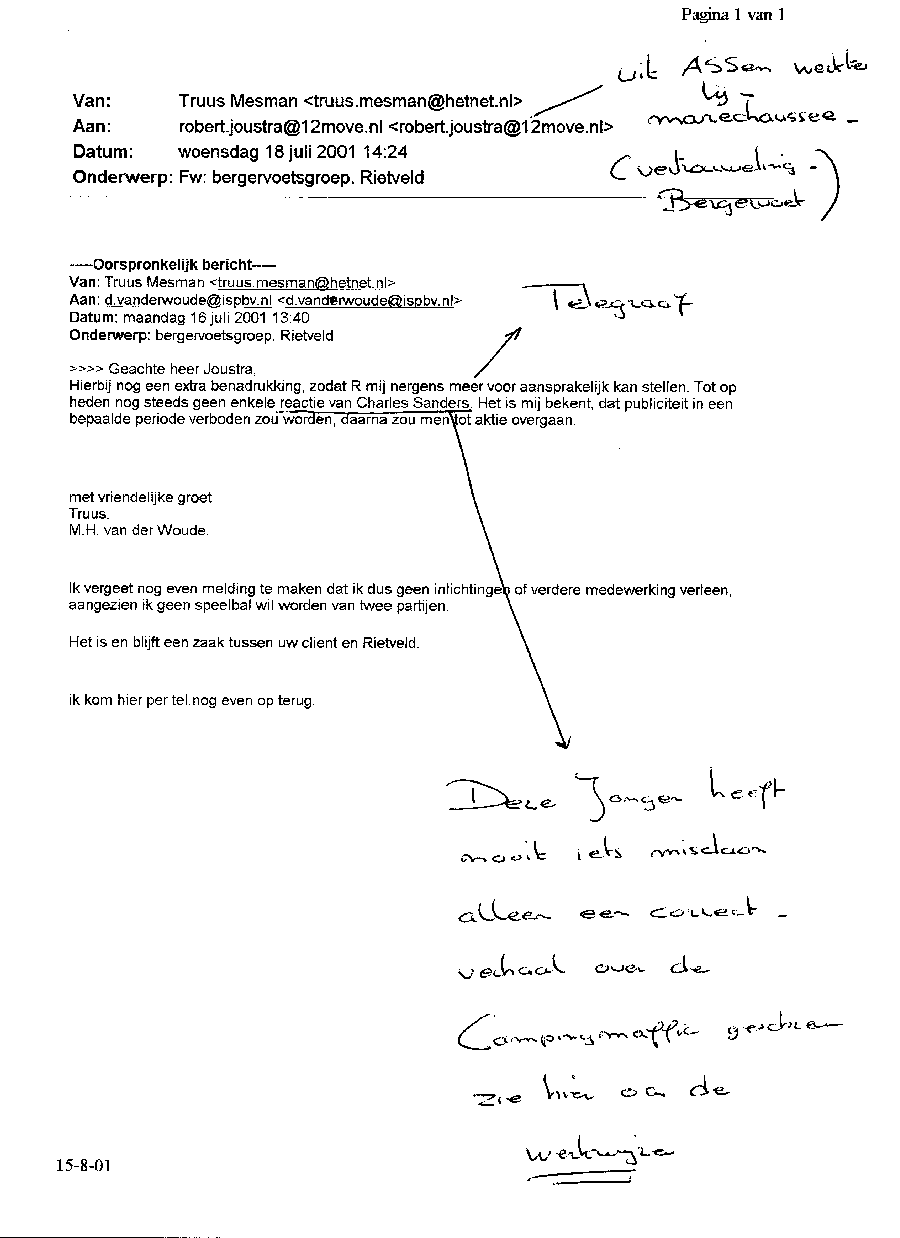 Pagina 1 van 1
uit ASSen werkte
bij -
marechaussee -
(vertrouweling -)
Bergervoet
Van: Truus Mesman <truus.mesman@hetnet.nl>
Aan: robert.joustra@12move.nl <robert.joustra@12move.nl>
Datum: woensdag 18 juli 2001 14:24
Onderwerp: Fw: bergervoetsgroep. Rietveld
-----Oorspronkelijk bericht-----
Van: Truus Mesman <truus.mesman@hetnet.nl>
Aan: d.vanderwoude@ispbv.nl <d.vanderwoude@ispbv.nl>
Datum: maandag 16 juli 2001 13:40
Onderwerp: bergervoetsgroep. Rietveld
Telegraaf
>>>> Geachte heer Joustra,
Hierbij nog een extra benadrukking, zodat R mij nergens meer voor aansprakelijk kan stellen. Tot op
heden nog steeds geen enkele reactie van Charles Sanders. Het is mij bekent, dat publiciteit in een
bepaalde periode verboden zou worden, daarna zou men tot aktie overgaan.
met vriendelijke groet
Truus.
M.H. van der Woude.
Ik vergeet nog even melding te maken dat ik dus geen inlichtingen of verdere medewerking verleen,
aangezien ik geen speelbal wil worden van twee partijen.
Het is en blijft een zaak tussen uw client en Rietveld.
ik kom hier per tel.nog even op terug.
Deze Jongen heeft
nooit iets misdaan
alleen een correct -
verhaal over de
Campingmaffia
zie hier de
werkwijze
15-8-01